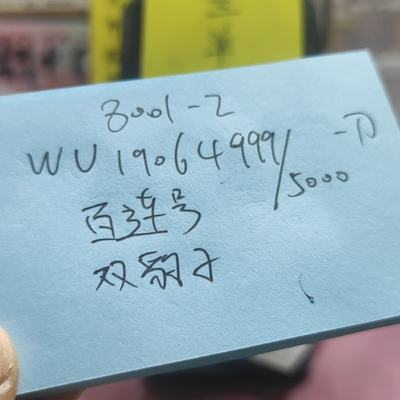 8001-2
WU19064999/5000-D
百连号
双豹子